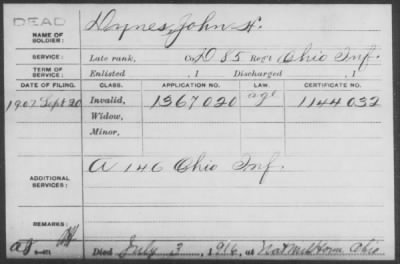 DEAD
NAME OF SOLDIER: Dynes, John H.
SERVICE: Late rank, Co. D 85 Reg't Ohio Inf.
TERM OF SERVICE: Enlisted , 1 Discharged , 1
DATE OF FILING. CLASS. APPLICATION NO. LAW. CERTIFICATE NO.
1907 Sept 20 Invalid, 1367020 age 1144032
Widow,
Minor,
ADDITIONAL SERVICES: A 146 Ohio Inf.
REMARKS:
Died July 3, 1916, at Nat Mil Home Ohio